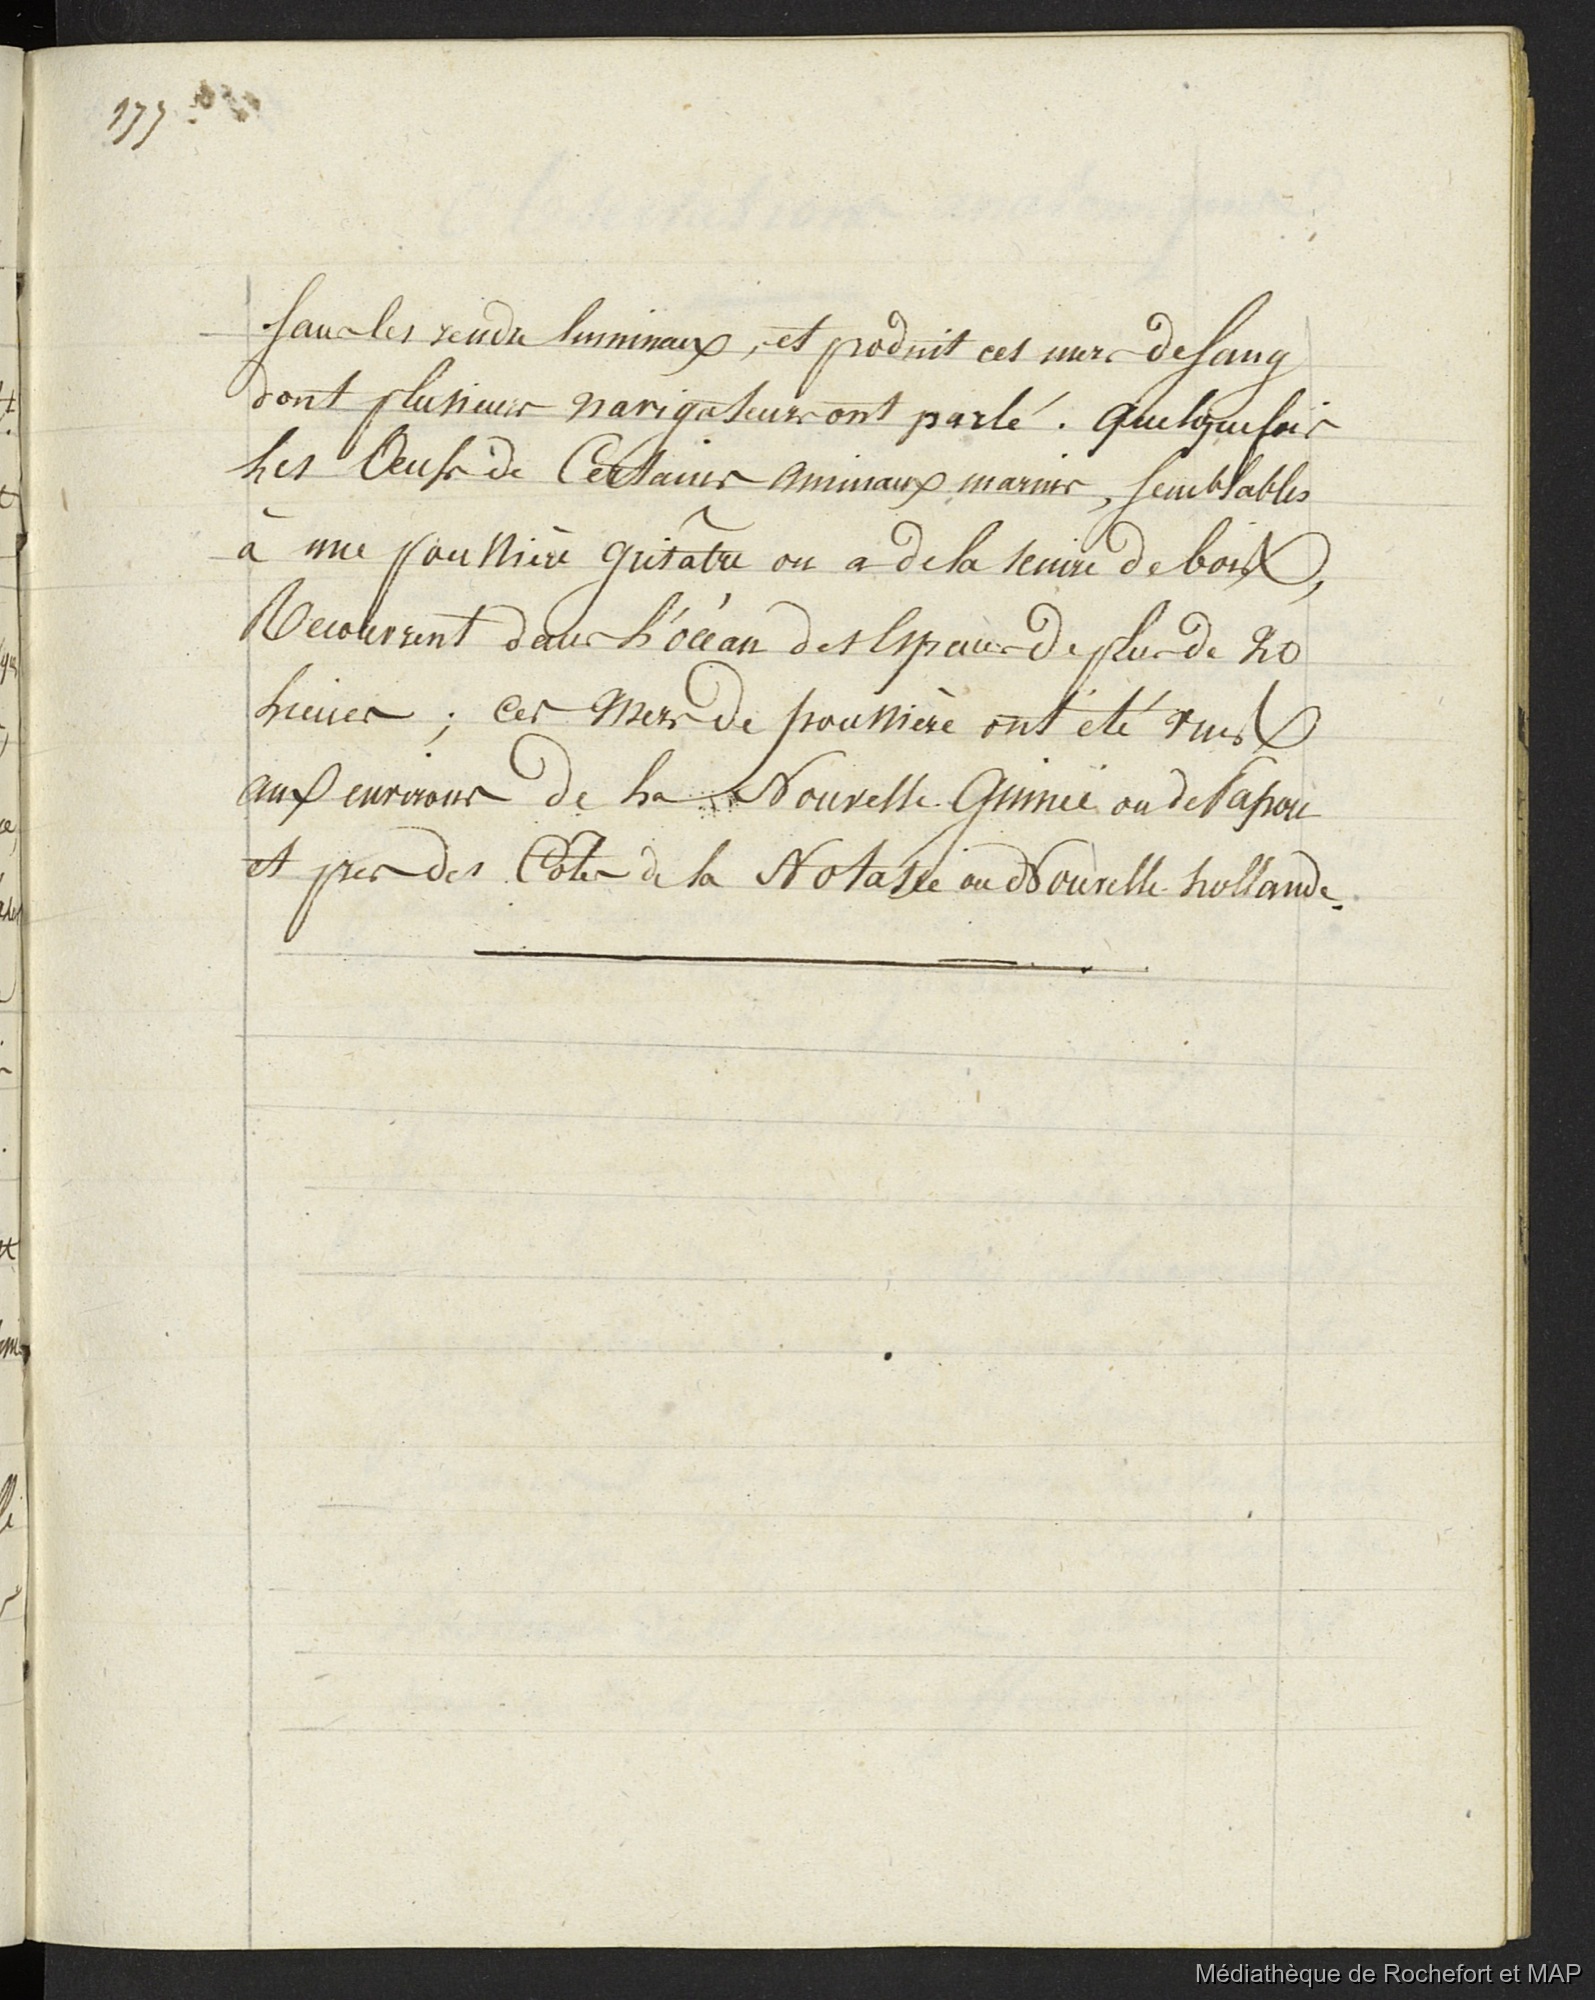 177
Sans les rendre lumineux, et produit ces mers de sang
dont plusieurs navigateurs ont parlé. quelquefois
les Oeufs de Certains animaux marins, semblables
à une poussière grisâtre ou a de la sciure de bois,
Recouvrent dans l'océan des Espaces de plus de 20
lieues ; ces Mers de poussière ont été vues
aux environs de la Nouvelle Guinée ou de Papou
et pres des Côtes de la Notasie ou Nouvelle hollande.
Médiathèque de Rochefort et MAP